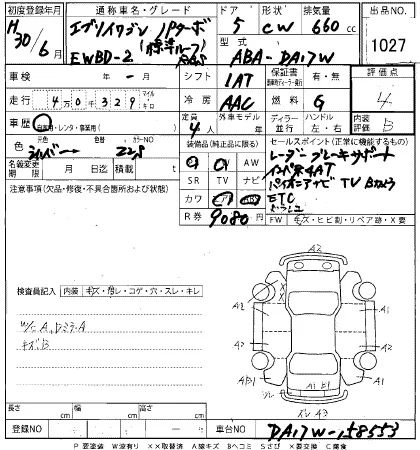 初度登録年月 通称車名・グレード ドア 形状 排気量 出品NO.
H30/6 エブリイワゴン JPターボ (標準ルーフ) 5 CW 660cc 1027
EWBD-2 型式 ABA-DA17W
車検 年 - 月 シフト 1AT 保証書 有・無 評価点
走行 4万0千329 マイル キロ 冷房 AAC 燃料 G 4
車歴 自家用・レンタ・事業用( ) 定員 4人 外車モデル 年 ディーラー 並行 ハンドル 左・右 内装 B
色 元色 シルバー 色替 カラーNO Z2S
名義変更期限 月 日迄 積載 t
装備品(純正品に限る) セールスポイント(正常に機能するもの)
AW
SR TV ナビ
カワ
R券 9080
レーダーブレーキサポート
インパネ4AT
パイオニアナビ TV Bカメラ
ETC
FW キズ・ヒビ割・リペア跡・X要
注意事項(欠品・修復・不具合箇所および状態)
検査員記入 内装 キズ・汚レ・コゲ・穴・スレ・キレ
W/ A, DミラーA
キズB
A2
A2 A1
A2 A1
AB1 A1 B1 A1
スレ A3
長さ cm 幅 cm 高さ cm
登録NO - 車台NO DA17W-158553
P 要塗装 W波有り ××取替済 A線キズ Bヘコミ Sさび ×要交換 C腐食